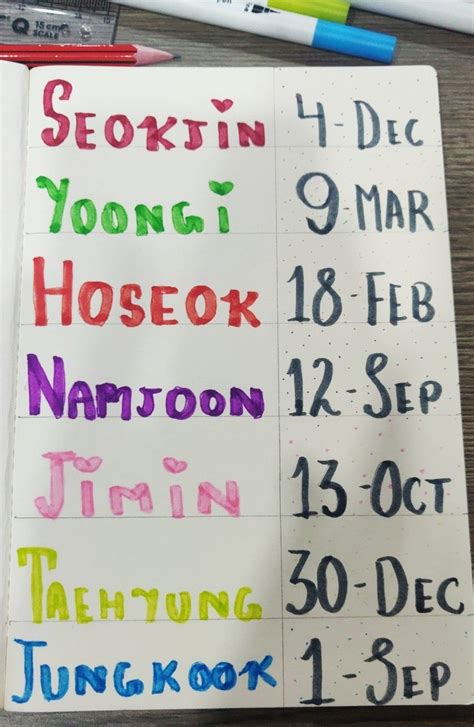 15 cm
SCALE
pen
SEOKJIN 4-DEC
YOONGI 9-MAR
HOSEOK 18-FEB
NAMJOON 12-SEP
JIMIN 13-OCT
TAEHYUNG 30-DEC
JUNGKOOK 1-SEP